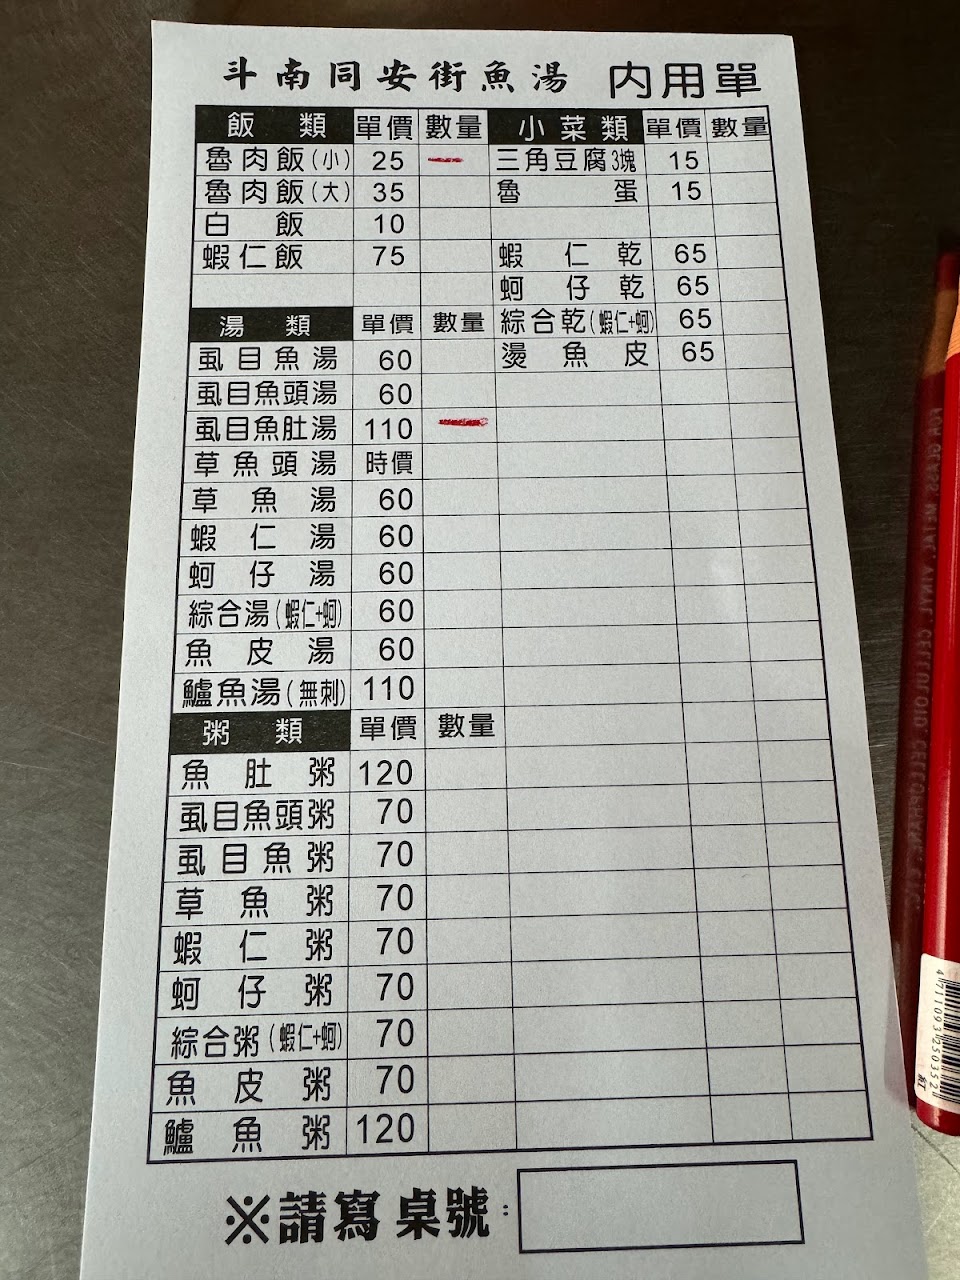 斗南同安街魚湯 內用單
飯類 單價 數量 小菜類 單價 數量
魯肉飯(小) 25 一 三角豆腐3塊 15
魯肉飯(大) 35 魯蛋 15
白飯 10
蝦仁飯 75 蝦仁乾 65
蚵仔乾 65
湯類 單價 數量 綜合乾(蝦仁+蚵) 65
虱目魚湯 60 燙魚皮 65
虱目魚頭湯 60
虱目魚肚湯 110 一
草魚頭湯 時價
草魚湯 60
蝦仁湯 60
蚵仔湯 60
綜合湯(蝦仁+蚵) 60
魚皮湯 60
鱸魚湯(無刺) 110
粥類 單價 數量
魚肚粥 120
虱目魚頭粥 70
虱目魚粥 70
草魚粥 70
蝦仁粥 70
蚵仔粥 70
綜合粥(蝦仁+蚵) 70
魚皮粥 70
鱸魚粥 120
※請寫桌號:
4711093250352
紅